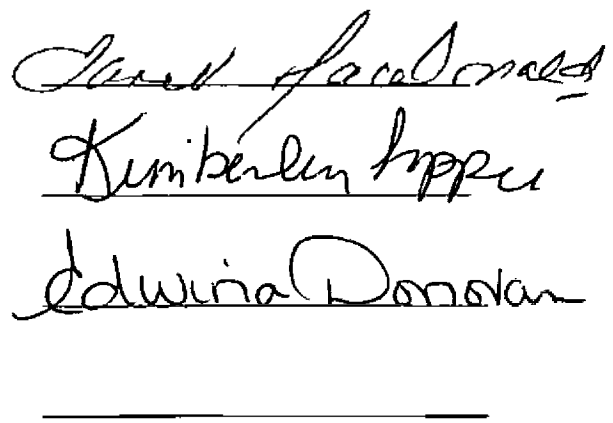 Janet MacDonald
Kimberley
Edwina Donovan